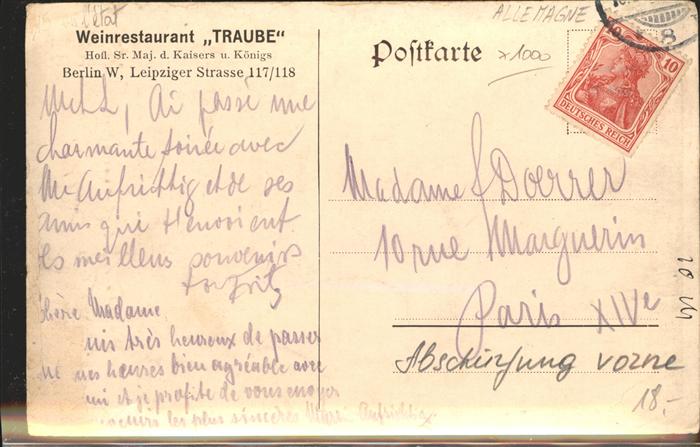 l'état
Weinrestaurant „TRAUBE“
Hofl. Sr. Maj. d. Kaisers u. Königs
Berlin W, Leipziger Strasse 117/118
Ai passé une
charmante soirée avec
Mr Aufrichtig et de ses
amis qui t'envoient
les meilleurs souvenirs
Fritz
Chère Madame,
suis très heureux de passer
des heures bien agréable avec
et je profite de vous envoyer
les plus sincères Aufrichtig
ALLEMAGNE
Postkarte
x1000
8
10
DEUTSCHES REICH
Madame Doerrer
10 rue Marguerin
Paris XIVe
Abschürfung vorne
18.-